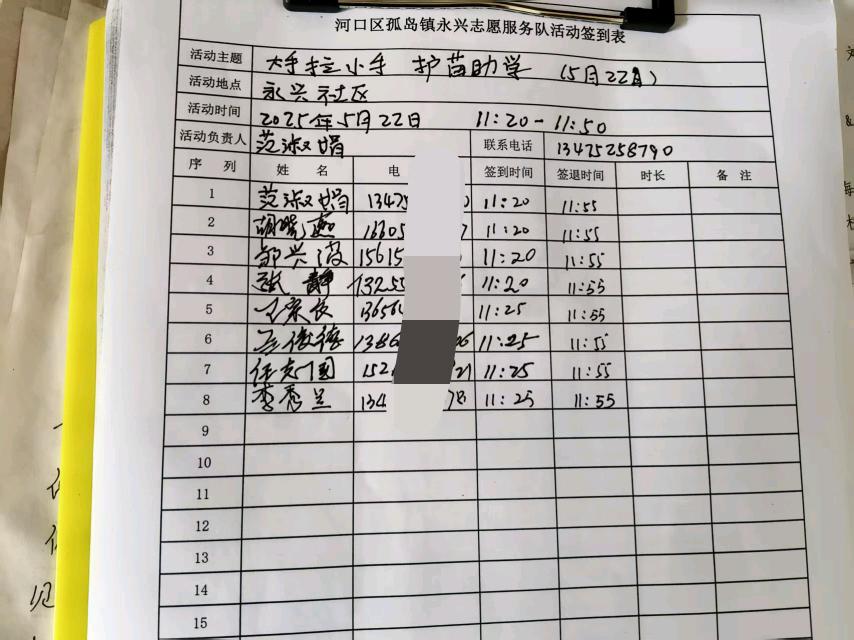 河口区孤岛镇永兴志愿服务队活动签到表
活动主题 大手拉小手 护苗助学 (5月22日)
活动地点 永兴社区
活动时间 2025年5月22日 11:20-11:50
活动负责人 范淑娟 联系电话 13475258790
序 列 姓 名 电 签到时间 签退时间 时长 备 注
1 范淑娟 1347 11:20 11:55
2 胡晓燕 16605 11:20 11:55
3 邹兴波 15615 11:20 11:55
4 张静 13255 11:20 11:55
5 13656 11:25 11:55
6 1386 11:25 11:55
7 任志国 152 21 11:25 11:55
8 李秀兰 134 78 11:25 11:55
9
10
11
12
13
14
15
见